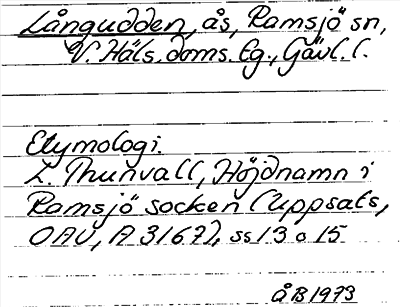 Långudden, ås, Ramsjö sn,
V. Häls. doms. lg., Gävl. l.
Etymologi.
L. Thunvall, Höjdnamn i
Ramsjö socken (Uppsats,
OAU, A 3167), ss 13 o 15
ÅB 1973